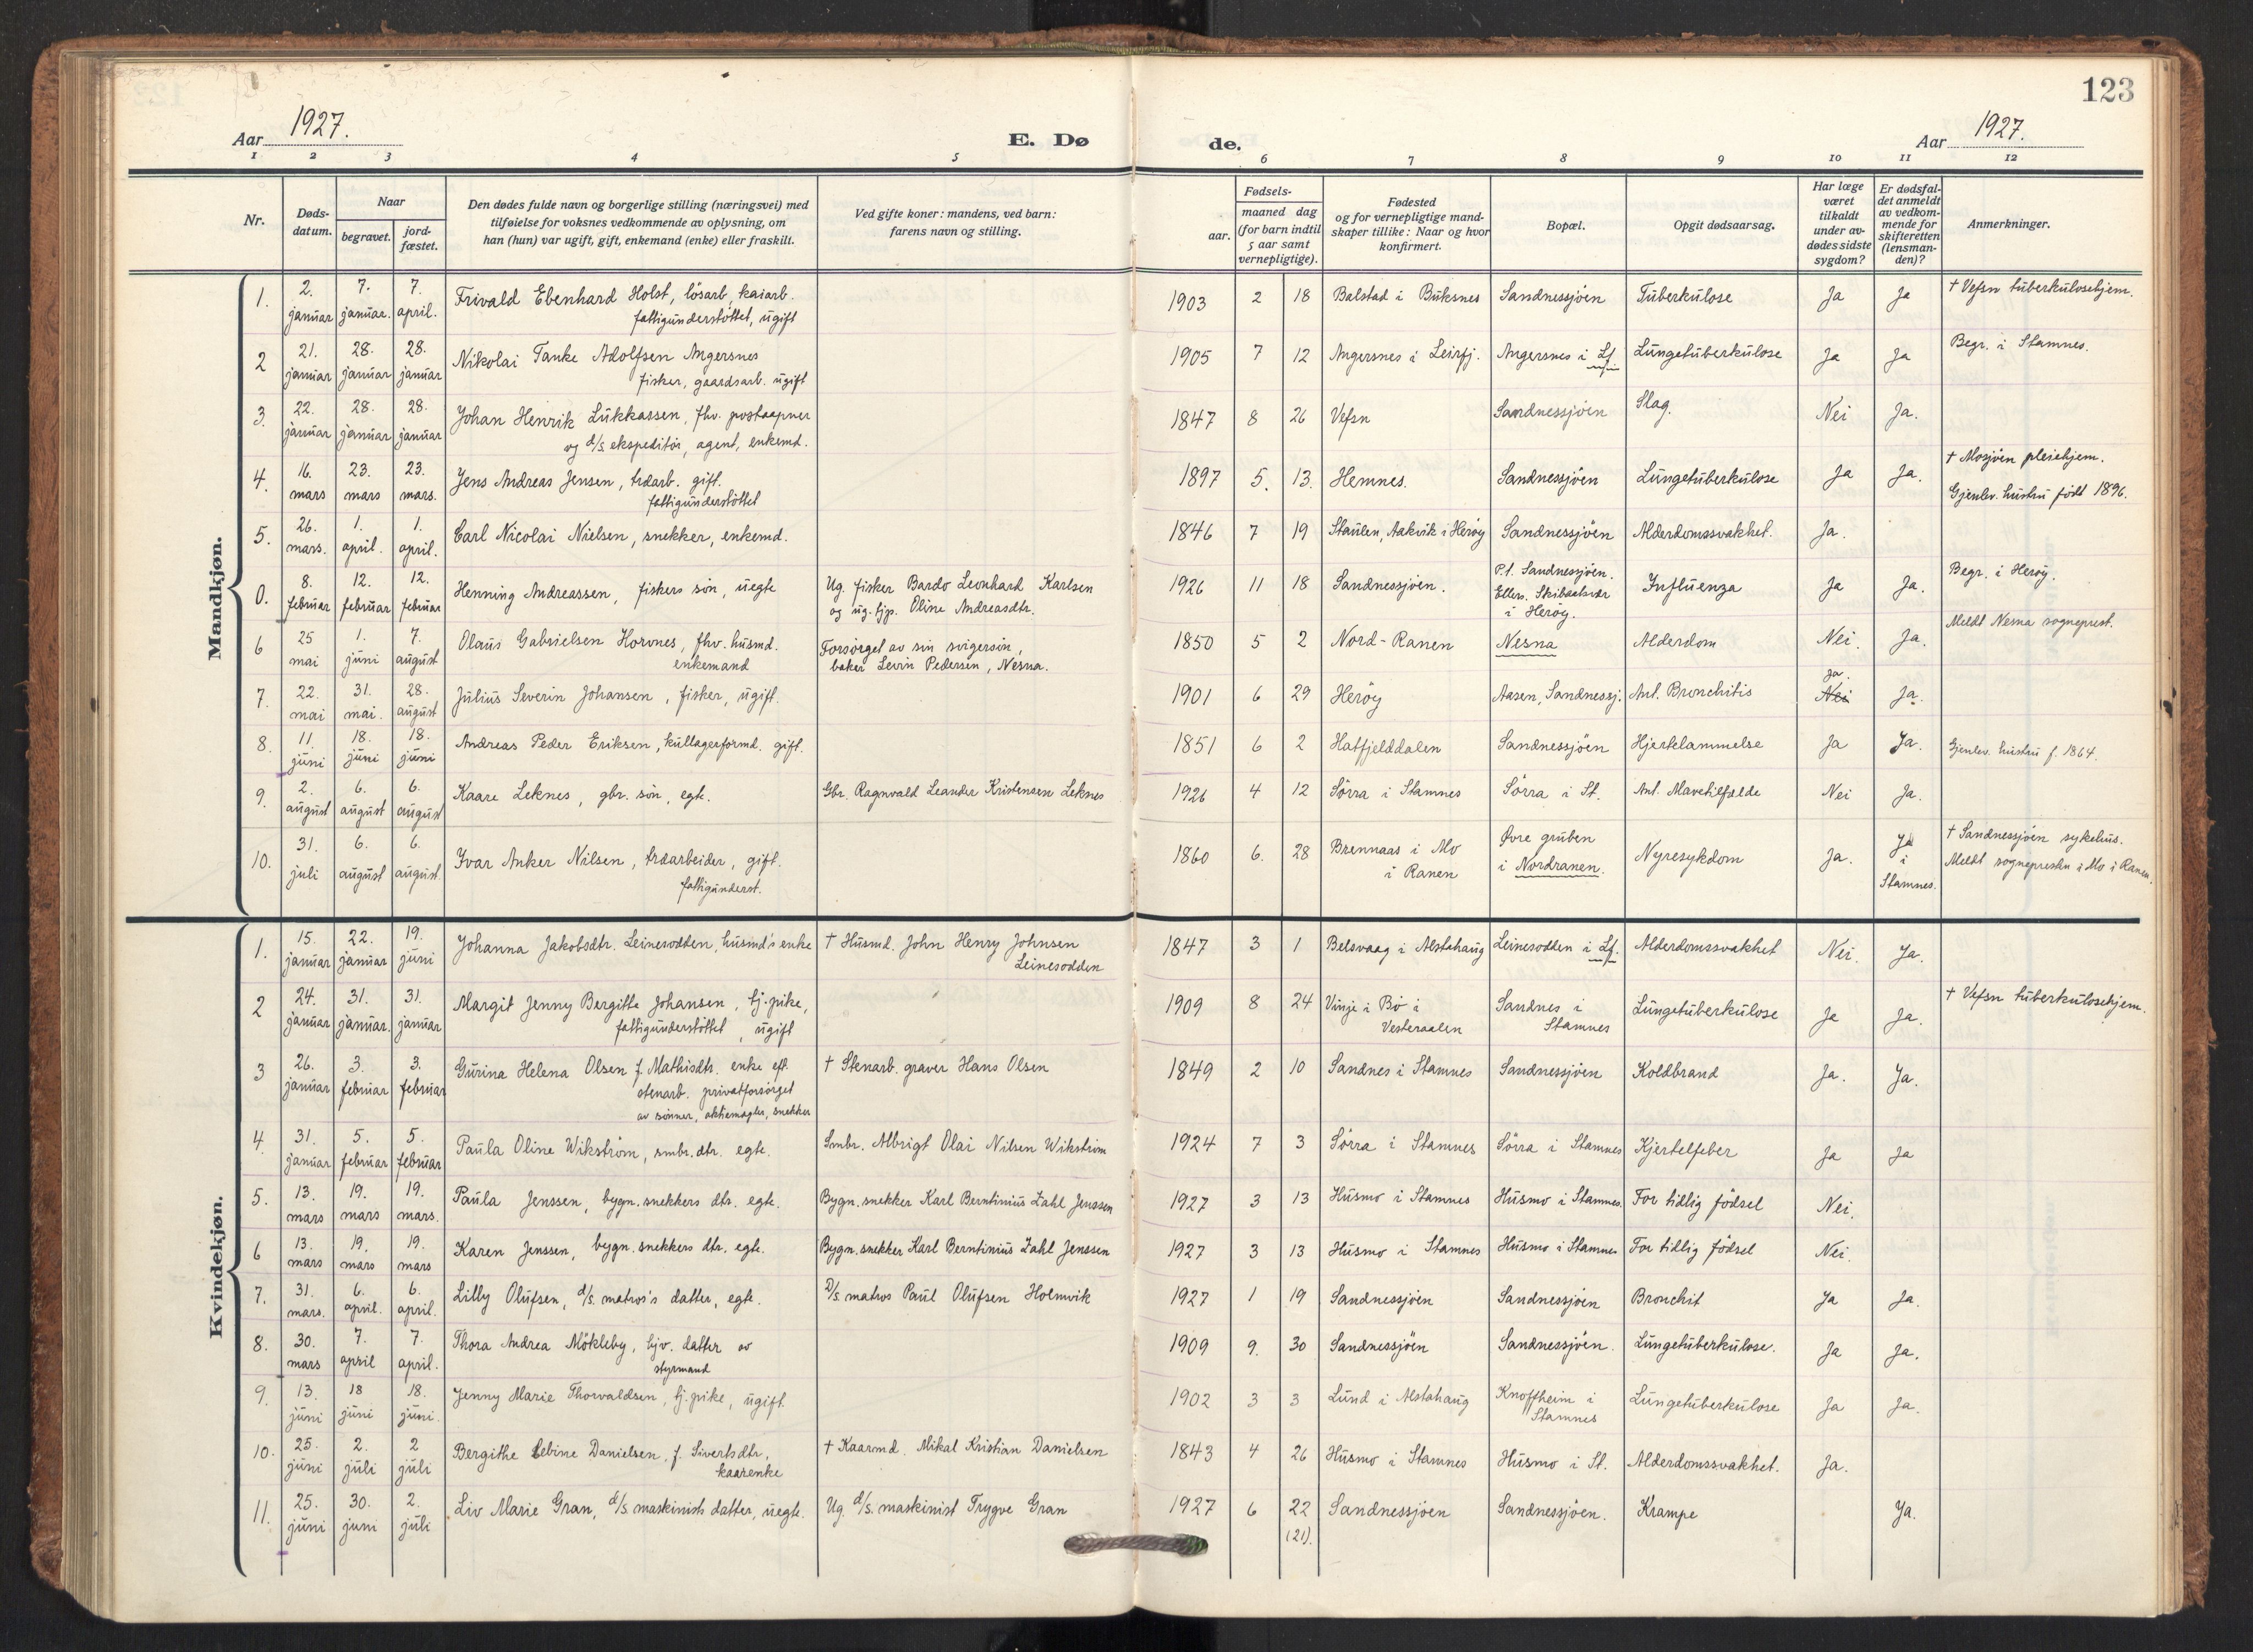 123
Aar 1927.
E. Dø
de.
Aar 1927.
1 2 3 4 5 6 7 8 9 10 11 12
Nr.
Døds-
datum.
Naar
begravet.
jord-
fæstet.
Den dødes fulde navn og borgerlige stilling (næringsvei) med
tilføielse for voksnes vedkommende av oplysning, om
han (hun) var ugift, gift, enkemand (enke) eller fraskilt.
Ved gifte koner: mandens, ved barn:
farens navn og stilling.
Fødsels-
aar.
maaned dag
(for barn indtil
5 aar samt
vernepligtige).
Fødested
og for vernepligtige mand-
skaper tillike: Naar og hvor
konfirmert.
Bopæl.
Opgit dødsaarsag.
Har læge
været
tilkaldt
under av-
dødes sidste
sygdom?
Er dødsfal-
det anmeldt
av vedkom-
mende for
skifteretten
(lensman-
den)?
Anmerkninger.
Mandkjøn.
1. 2. januar 7. januar. 7. april. Frivald Ebenhard Holst, løsarb, kaiarb.
fattigunderstøttet, ugift
1903 2 18 Balstad i Buksnes Sandnessjøen Tuberkulose Ja Ja † Vefsn tuberkulosehjem.
2 21. januar 28. januar 28. januar Nikolai Tanke Adolfsen Angersnes
fisker, gaardsarb. ugift
1905 7 12 Angersnes i Leirfj. Angersnes i Lf. Lungetuberkulose Ja Ja Begr. i Stamnes.
3. 22. januar 28. januar 28. januar Johan Henrik Lukkassen, fhv. postaapner
og d/s ekspeditør, agent, enkemd.
1847 8 26 Vefsn Sandnessjøen Slag. Nei Ja.
4. 16. mars 23. mars 23. mars. Jens Andreas Jensen, trdarb. gift.
fattigunderstøttet
1897 5. 13. Hemnes. Sandnessjøen Lungetuberkulose Ja Ja. † Mosjøen pleiehjem.
Gjenlev. hustru født 1896.
5. 26. mars. 1. april. 1. april. Carl Nicolai Nielsen, snekker, enkemd.
1846 7 19 Staulen, Aakvik i Herøy Sandnessjøen Alderdomssvakhet. Ja.
0. 8. februar 12. februar 12. februar Henning Andreassen, fiskers søn, uegte Ug. fisker Bardo Leonhard Karlsen
og ug. tjp. Oline Andreasdtr.
1926 11 18 Sandnessjøen. P.t. Sandnessjøen.
Ellers. Skibaatsvær
i Herøy.
Influenza Ja Ja. Begr. i Herøy.
6 25 mai 1. juni 7. august Olaus Gabrielsen Horvnes, fhv. husmd.
enkemand
Forsørget av sin svigersøn,
baker Levin Pedersen, Nesna.
1850 5 2 Nord-Ranen Nesna Alderdom Nei. Ja. Meldt Nesna sogneprest.
7. 22. mai 31. mai. 28. august Julius Severin Johansen, fisker, ugift.
1901 6 29 Herøy Aasen, Sandnessj. Ant. Bronchitis Ja. Nei Ja.
8. 11. juni 18. juni 18. juni Andreas Peder Eriksen, kullagerformd. gift.
1851 6 2 Hatfjelddalen Sandnessjøen Hjertelammelse Ja Ja. Gjenlev. hustru f. 1864.
9. 2. august 6. august 6. august Kaare Leknes, gbr. søn, egte. Gbr. Ragnvald Leander Kristensen Leknes
1926 4 12 Sørra i Stamnes Sørra i St. Ant. Mavetilfælde Nei Ja.
10. 31. juli 6. august 6. august. Ivar Anker Nilsen, trdarbeider, gift.
fattigunderst.
1860 6. 28 Brennaas i Mo
i Ranen
Øvre gruben
i Nordranen.
Nyresykdom Ja. Ja
i
Stamnes.
† Sandnessjøen sykehus.
Meldt sognepresten i Mo i Ranen.
Kvindekjøn.
1. 15. januar 22. januar 19. juni Johanna Jakobsdtr. Leinesodden, husmd's enke † Husmd. John Henry Johnsen
Leinesodden
1847 3 1 Belsvaag i Alstahaug Leinesodden i Lf. Alderdomssvakhet Nei. Ja.
2 24. januar 31. januar. 31. januar Margit Jenny Bergitte Johansen, tj. pike,
fattigunderstøttet, ugift
1909 8 24 Vinje i Bø i
Vesteraalen
Sandnes i
Stamnes
Lungetuberkulose Ja Ja. † Vefsn tuberkulosehjem.
3 26. januar 3. februar 3. februar Gurina Helena Olsen f. Mathisdtr. enke eft.
stenarb. privatforsørget
av sønner, aktiemægler, snekker
† Stenarb. graver Hans Olsen
1849 2 10 Sandnes i Stamnes Sandnessjøen Koldbrand Ja. Ja.
4. 31. januar 5. februar 5. februar Paula Oline Wikstrøm, smbr. dtr. egte. Smbr. Albrigt Olai Nilsen Wikstrøm
1924 7 3 Sørra i Stamnes Sørra i Stamnes Kjertelfeber Ja Ja
5. 13. mars 19. mars 19. mars. Paula Jenssen, bygn. snekkers dtr. egte. Bygn. snekker Karl Berntinius Zahl Jenssen
1927 3 13 Husmo i Stamnes Husmo i Stamnes. For tidlig fødsel Nei.
6 13. mars 19. mars 19. mars Karen Jenssen, bygn. snekkers dtr. egte. Bygn. snekker Karl Berntinius Zahl Jenssen
1927 3 13 Husmo i Stamnes Husmo i Stamnes For tidlig fødsel Nei.
7. 31. mars. 6. april. 6. april. Lilly Olufsen, d/s. matros's datter, egte. D/s. matros Paul Olufsen Holmvik
1927 1 19 Sandnessjøen Sandnessjøen Bronchit Ja Ja.
8. 30. mars 7. april 7. april. Thora Andrea Møkleby, hjv. datter av
styrmand
1909 9. 30 Sandnessjøen Sandnessjøen. Lungetuberkulose. Ja Ja.
9. 13. juni 18 juni 18. juni. Jenny Marie Thorvaldsen, tj. pike, ugift.
1902 3 3 Lund i Alstahaug Knoffheim i
Stamnes
Lungetuberkulose Ja Ja.
10. 25. juni 2. juli 2 juli Bergithe Sebine Danielsen, f. Sivertsdtr,
kaarenke
† Kaarmd. Mikal Kristian Danielsen
1843 4 26 Husmo i Stamnes Husmo i St. Alderdomssvakhet. Ja.
11. 25. juni 30. juni 2. juli Liv Marie Gran, d/s. maskinists datter, uegte. Ug. d/s. maskinist Trygve Gran
1927 6 22
(21).
Sandnessjøen Sandnessjøen. Krampe Ja.